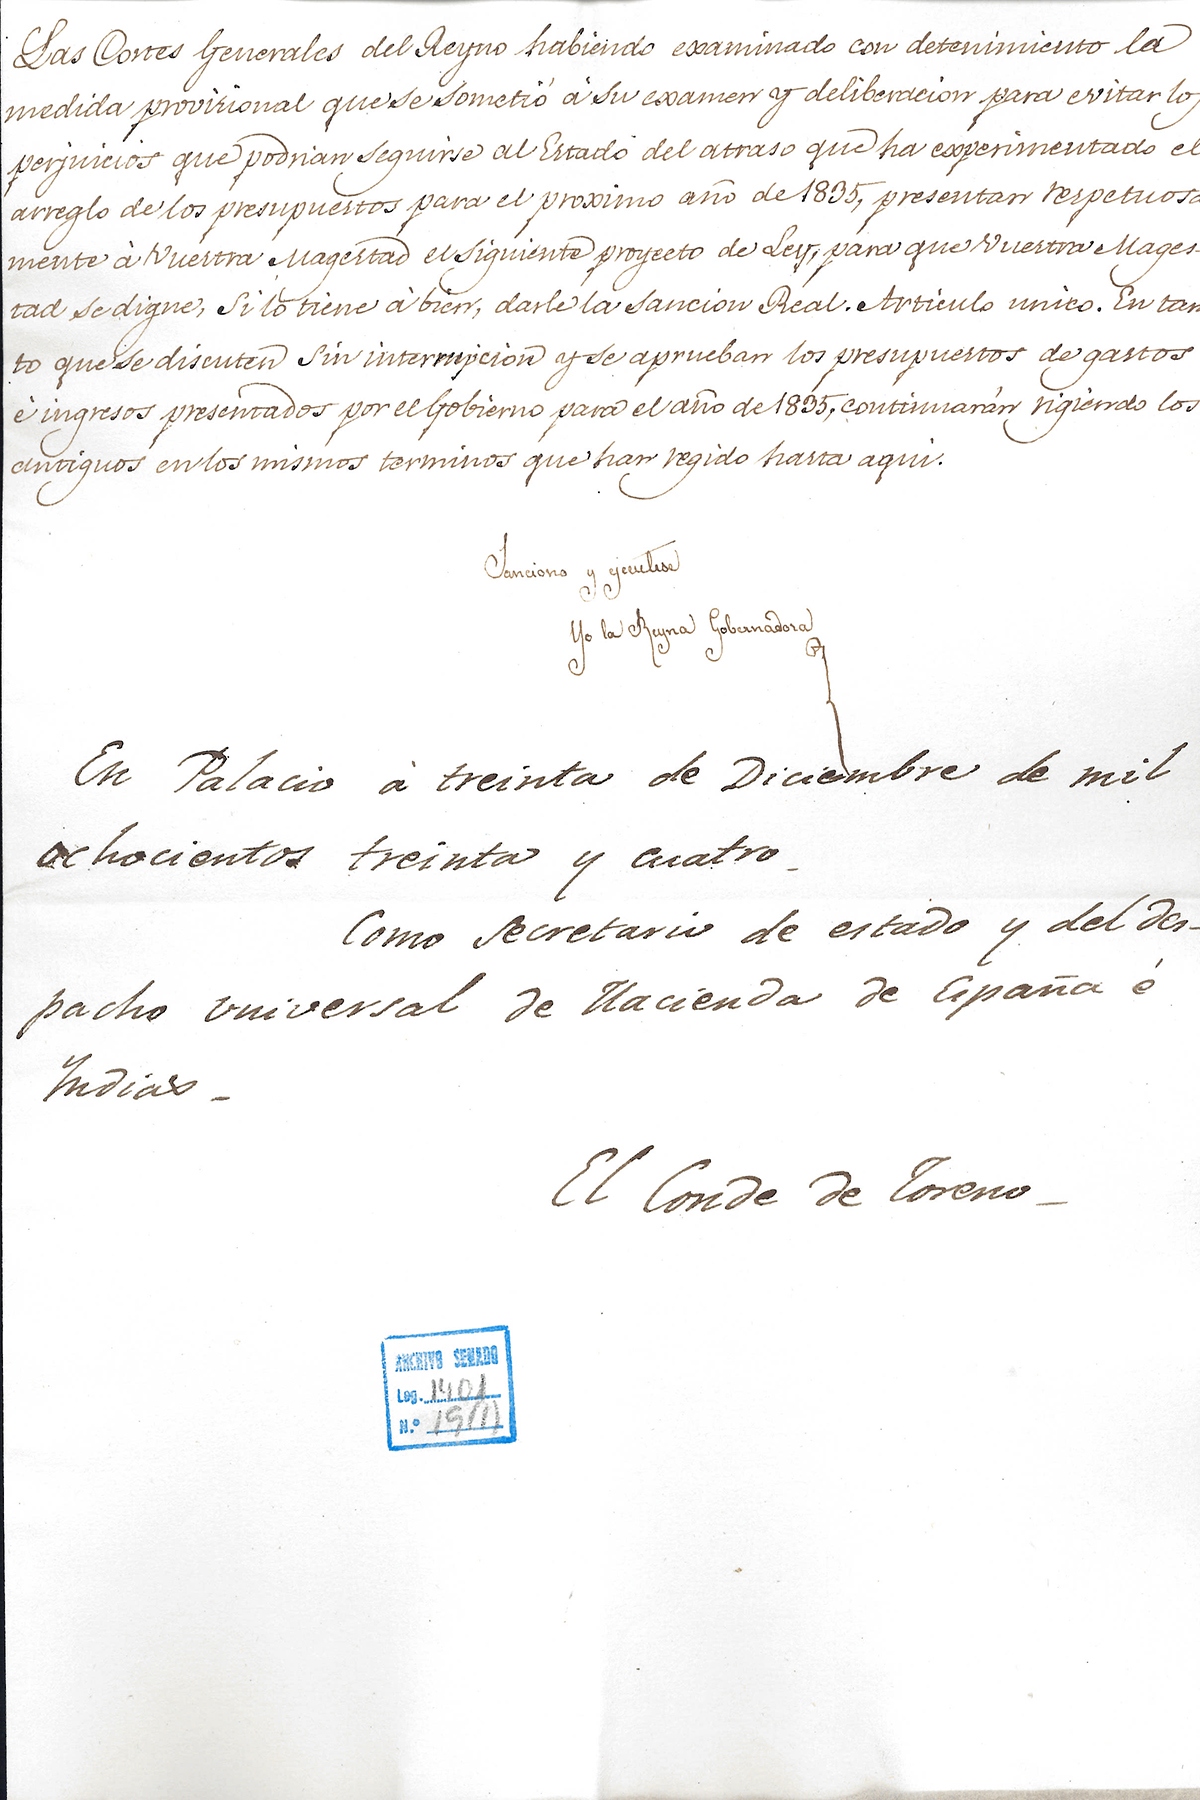 Las Cortes Generales del Reyno habiendo examinado con detenimiento la
medida provisional que se sometió á su examen y deliberacion para evitar los
perjuicios que podrian seguirse al Estado del atraso que ha experimentado el
arreglo de los presupuestos para el proximo año de 1835, presentan respetuosa
mente á Vuestra Magestad el siguiente proyecto de Ley, para que Vuestra Mages-
tad se digne, si lo tiene á bien, darle la sancion Real. Articulo unico. En tan
to que se discuten sin interrupcion y se aprueban los presupuestos de gastos
é ingresos presentados por el Gobierno para el año de 1835, continuarán rigiendo los
antiguos en los mismos terminos que han regido hasta aqui.
Sanciono y ejecutese
Yo la Reyna Gobernadora
En Palacio á treinta de Diciembre de mil
ochocientos treinta y cuatro_
Como Secretario de estado y del des-
pacho universal de Hacienda de España é
Indias_
El Conde de Toreno_
ARCHIVO SENADO
Leg. 1401
N.º 19(1)